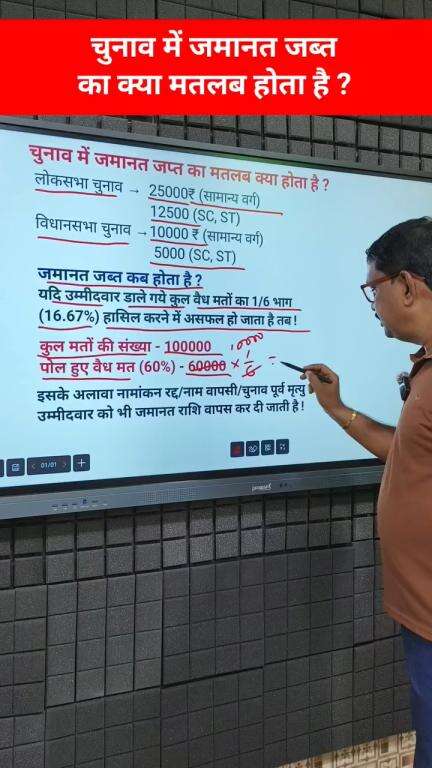 चुनाव में जमानत जब्त
का क्या मतलब होता है ?
चुनाव में जमानत जप्त का मतलब क्या होता है ?
लोकसभा चुनाव → 25000₹ (सामान्य वर्ग)
12500 (SC, ST)
विधानसभा चुनाव →10000 ₹ (सामान्य वर्ग)
5000 (SC, ST)
जमानत जब्त कब होता है ?
यदि उम्मीदवार डाले गये कुल वैध मतों का 1/6 भाग
(16.67%) हासिल करने में असफल हो जाता है तब !
कुल मतों की संख्या - 100000
10000
पोल हुए वैध मत (60%) - 60000 × 1/6 =
इसके अलावा नामांकन रद्द/नाम वापसी/चुनाव पूर्व मृत्यु
उम्मीदवार को भी जमानत राशि वापस कर दी जाती है !
01/01